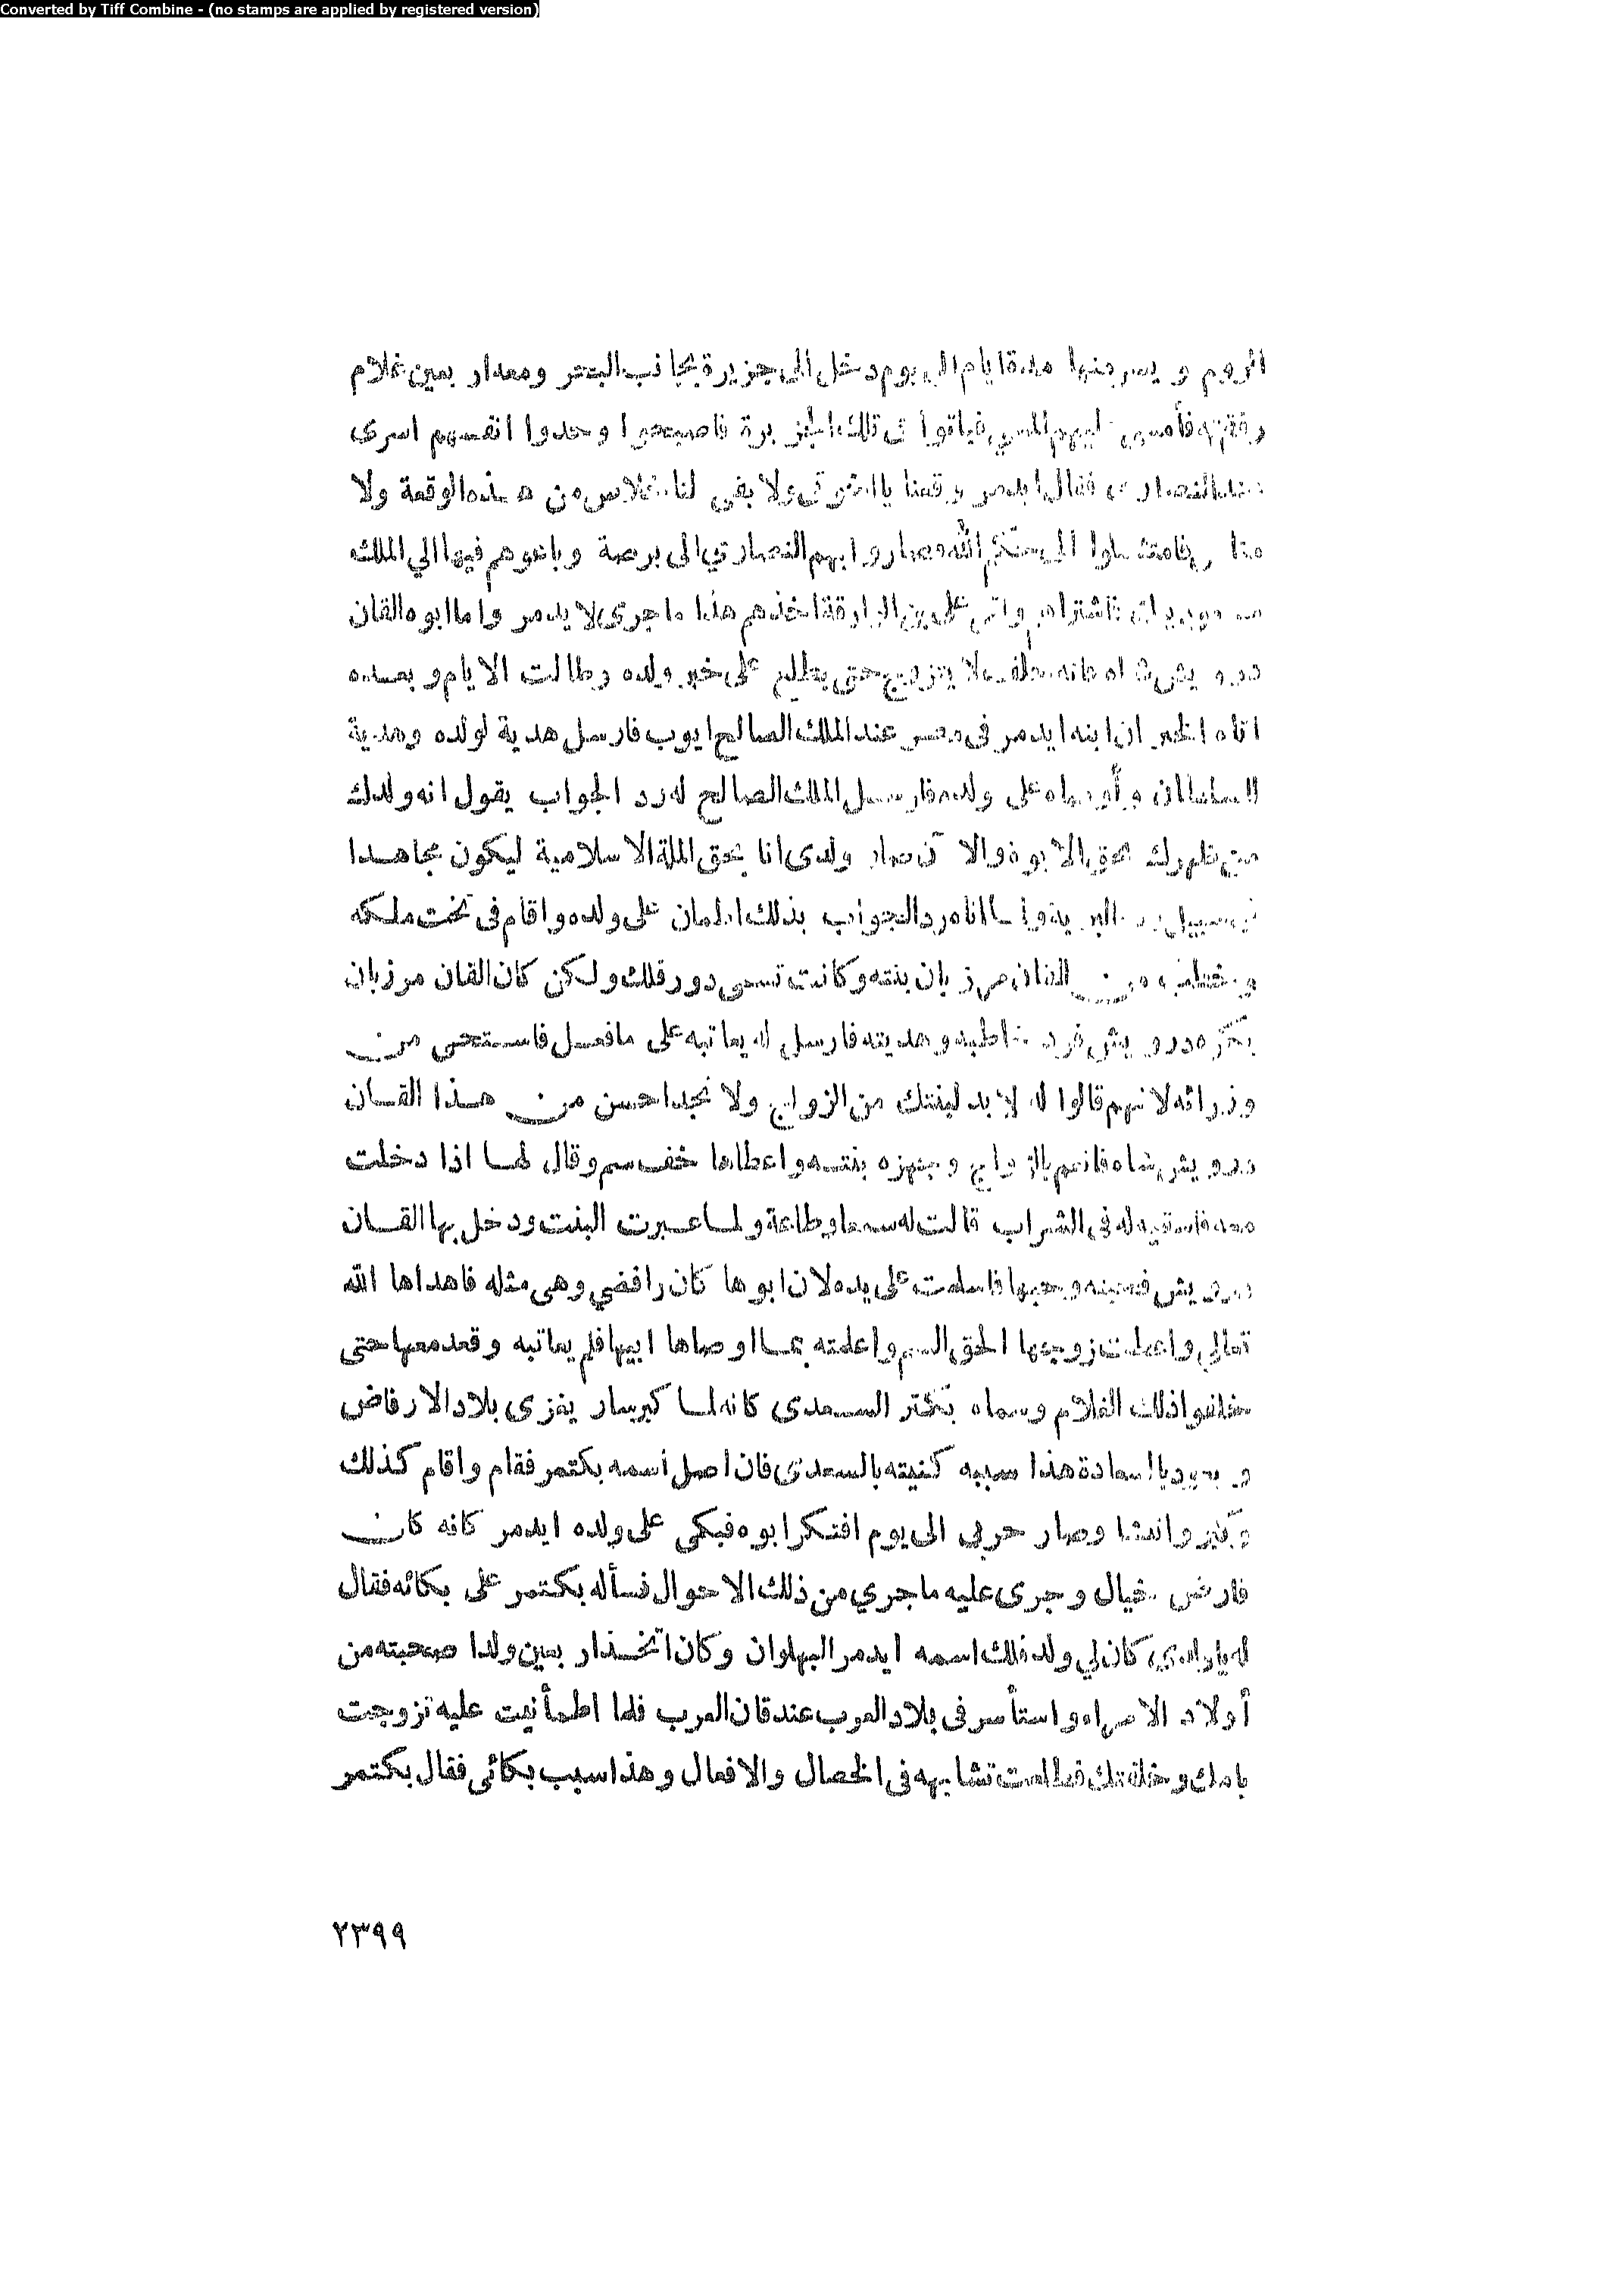 Converted by Tiff Combine - (no stamps are applied by registered version)
الروم و يسرجنها مدة ايام الى يوم دخل الى جزيرة بجانب البحر ومعه اربعين غلام
رفقته فأمسى المسى فباتوا فى تلك الجزيرة فاصبحوا وجدوا انفسهم اسرى
النصارى فقال ايدمر وقعنا يا اخوتى ولا بقى لنا خلاص من هذه الوقعة ولا
فامتثلوا الى حكم الله وصاروا بهم النصارى الى برصة وباعوهم فيها الي الملك
فاشتراهم واتى على بن الوراقة اخذهم هذا ما جرى لايدمر واما ابوه القان
درويش شاه فانه حلف لا يتزوج حتى يطلع على خبر ولده وطالت الايام وبعده
اتاه الخبر ان ابنه ايدمر فى مصر عند الملك الصالح ايوب فارسل هدية لولده وهدية
للسلطان وأوصاه على ولده فارسل الملك الصالح له رد الجواب يقول انه ولدك
من ظهرك بحق الابوة والا آن صار ولدى انا بحق الملة الاسلامية ليكون مجاهدا
سبيل اتاه رد الجواب بذلك اطمان على ولده واقام فى تخت ملكه
وخطب من القان مرزبان بنته وكانت تسمى دور فلك ولكن كان القان مرزبان
يكره درويش فرد خاطبه وهديته فارسل له يعاتبه على مافعل فاستحى من
وزرائه لانهم قالوا له لا بد لبنتك من الزواج ولا نجد احسن من هذا القان
درويش شاه فانعم بالزواج وجهزه بنته واعطاها خف سم وقال لها اذا دخلت
معه فاسقيه له فى الشراب قالت له سمعا وطاعة ولما عبرت البنت ودخل بها القان
درويش فحبته وحبها فاسلمت على يده لان ابوها كان رافضي وهى مثله فاهداها الله
تعالى واعطت زوجها الحق السم واعلمته بما اوصاها ابيها فلم يعاتبه وقعد معها حتى
خلفوا ذلك الغلام وسماه بكتمر السعدى كانه لما كبر سار يغزى بلاد الارفاض
و يعود بالسعادة هذا سببه كنيته بالسعدى فان اصل اسمه بكتمر فقام واقام كذلك
وكبر وانتشا وصار حربى الى يوم افتكر ابوه فبكى على ولده ايدمر كانه كان
فارض خيال وجرى عليه ما جري من ذلك الاحوال فسأله بكتمر على بكائه فقال
له يا ولدي كان لي ولد ذلك اسمه ايدمر البهلوان وكان اتخذ اربعين ولدا صحبته من
أولاد الامراء واستأسر فى بلاد العرب عند قان العرب فلما اطمأنيت عليه تزوجت
بامك وخلفتك فطلعت تشابهه فى الخصال والافعال وهذا سبب بكائى فقال بكتمر
٢٣٩٩